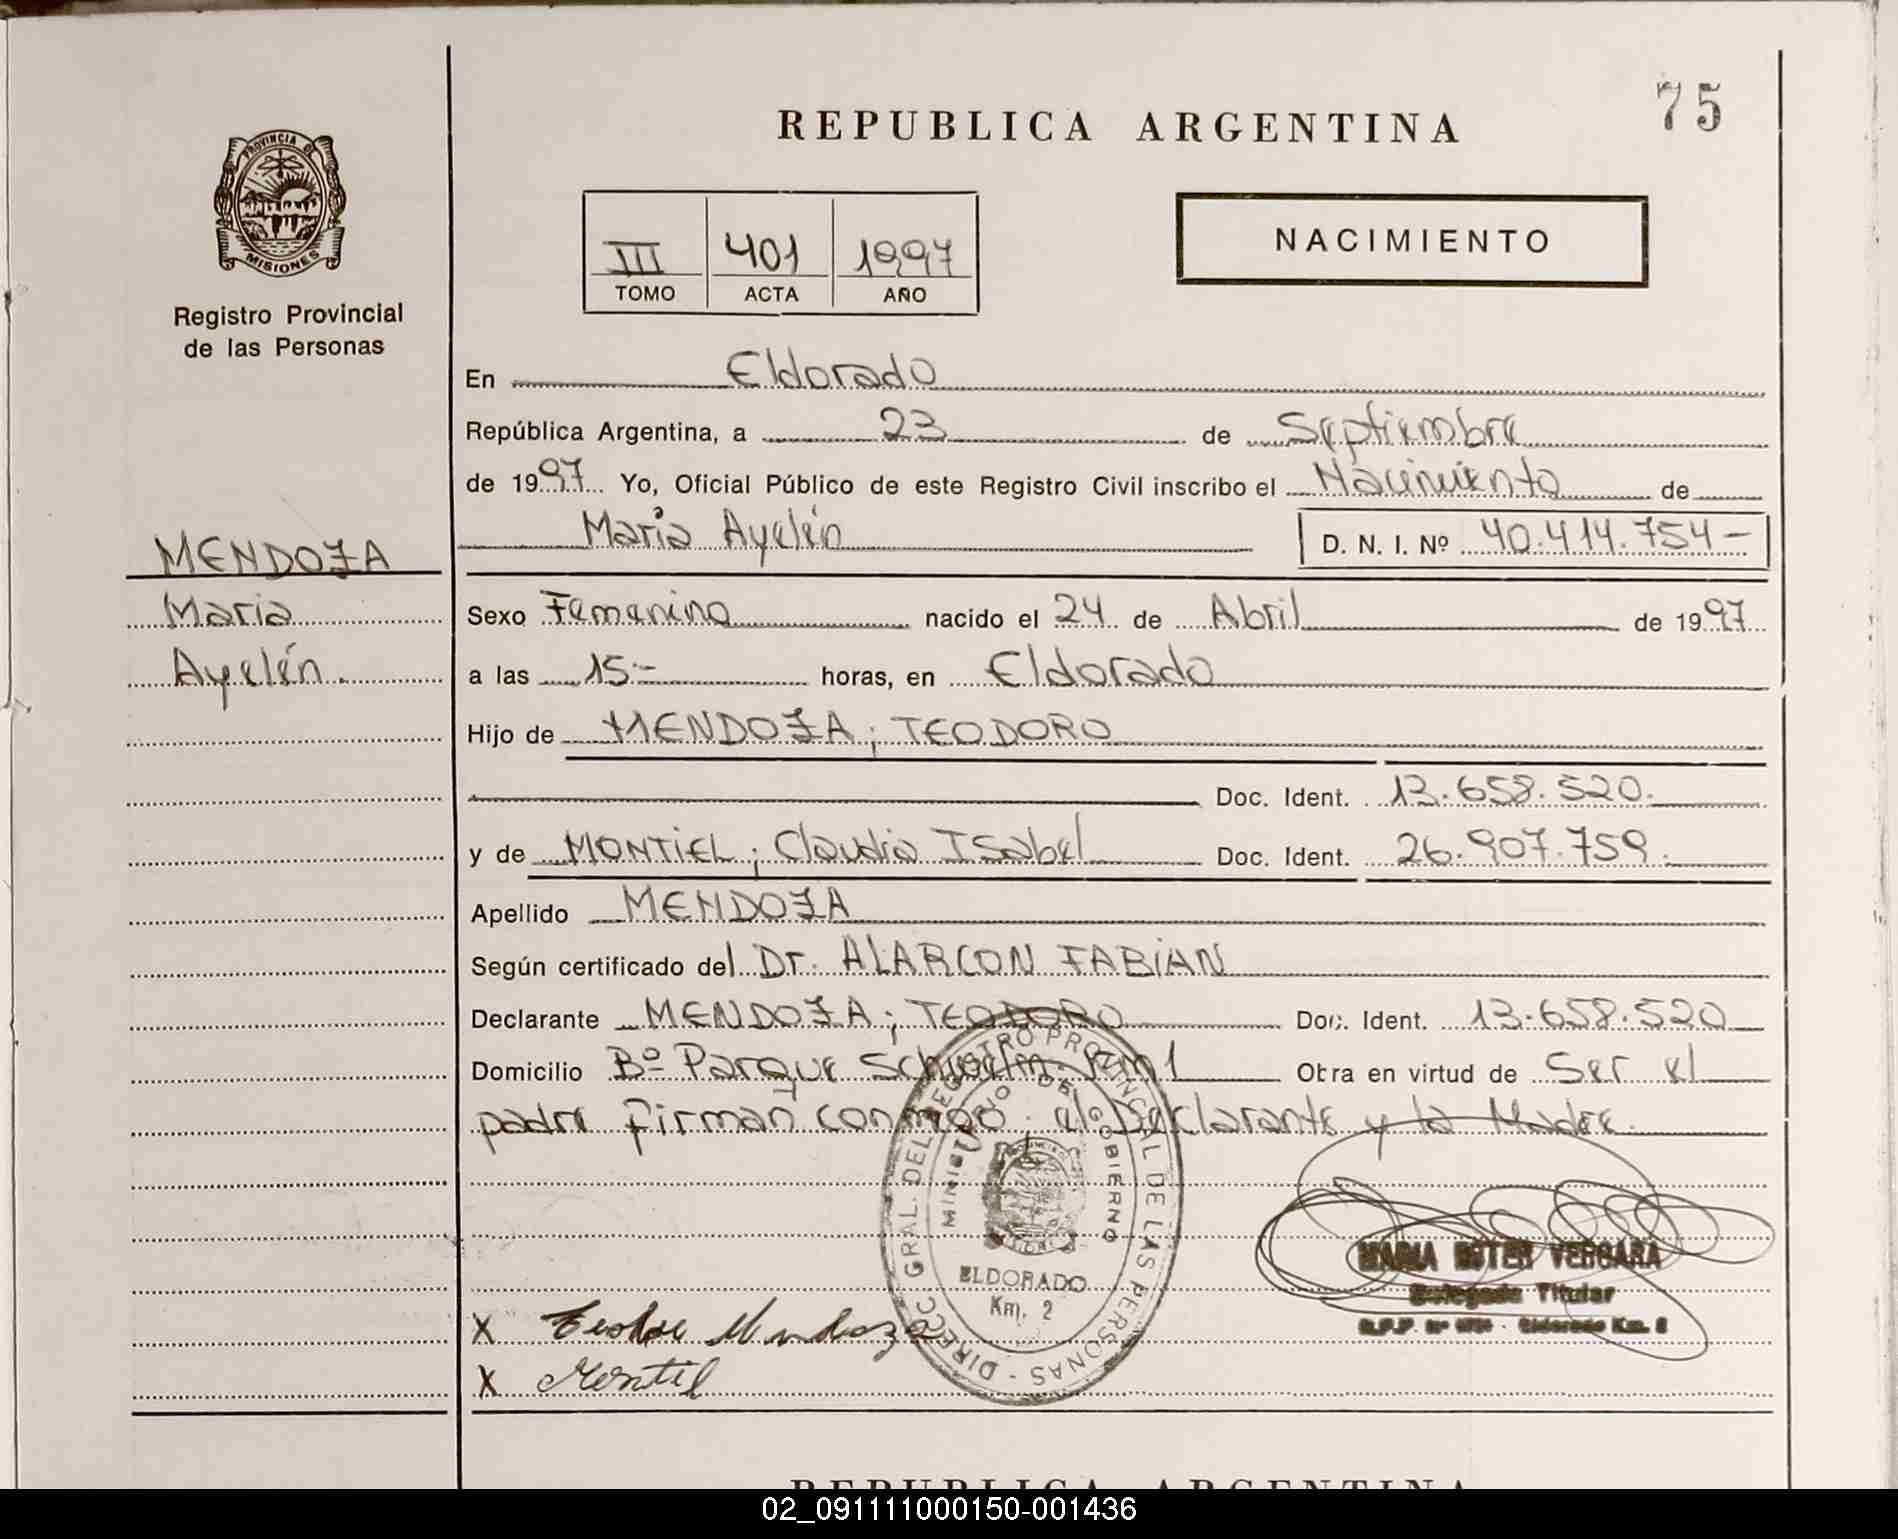 75
REPUBLICA ARGENTINA
PROVINCIA DE
MISIONES
Registro Provincial
de las Personas
III 401 1997
TOMO ACTA AÑO
NACIMIENTO
En Eldorado
República Argentina, a 23 de Septiembre
de 1997 Yo, Oficial Público de este Registro Civil inscribo el Nacimiento de
Maria Ayelén D. N. I. Nº 40.414.754-
MENDOZA
Maria
Ayelén.
Sexo Femenino nacido el 24 de Abril de 1997
a las 15:- horas, en Eldorado
Hijo de MENDOZA; TEODORO
Doc. Ident. 13.658.520.
y de MONTIEL; Claudia Isabel Doc. Ident. 26.907.759.
Apellido MENDOZA
Según certificado del Dr. ALARCON FABIAN
Declarante MENDOZA; TEODORO Doc. Ident. 13.658.520
Domicilio Bº Parque Schwelm Km 1 Obra en virtud de Ser el
padre firman conmigo; el Declarante y la Madre.
DIRECC. GRAL. DEL REGISTRO PROVINCIAL DE LAS PERSONAS
MINISTERIO DE GOBIERNO
ELDORADO
Km. 2
MARIA VERGARA
Delegada Titular
Eldorado Km. 2
X Mendoza
X Montiel
REPUBLICA ARGENTINA
02_091111000150-001436